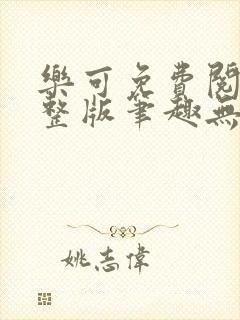 樂可免費閱
整版筆趣無
姚志偉